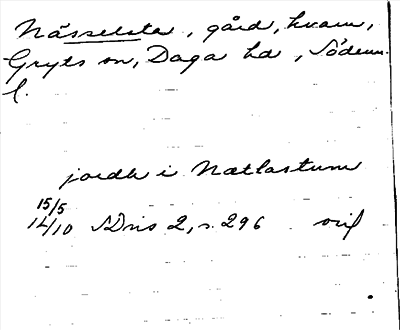 Nässelsta, gård, kvarn,
Gryts sn, Daga hd, Söderm.
l.
jordh i Natlastum
15/5
14/10 SDns 2, s. 296 orig